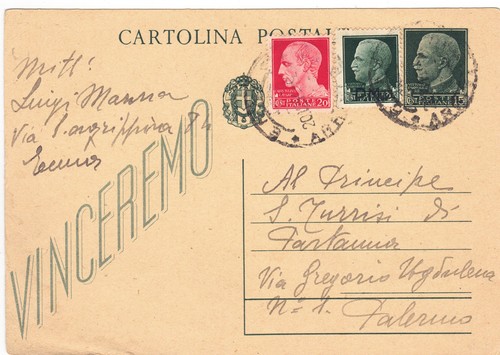 CARTOLINA POSTALE
Mitt:
Luigi Manna
Via S. Agrippina 84
POSTE ITALIANE
20
POSTE ITALIANE
15
VINCEREMO
Al Principe
S. Turrisi di
Partanna
Via Gregorio Ugdulena
N= 1. Palermo